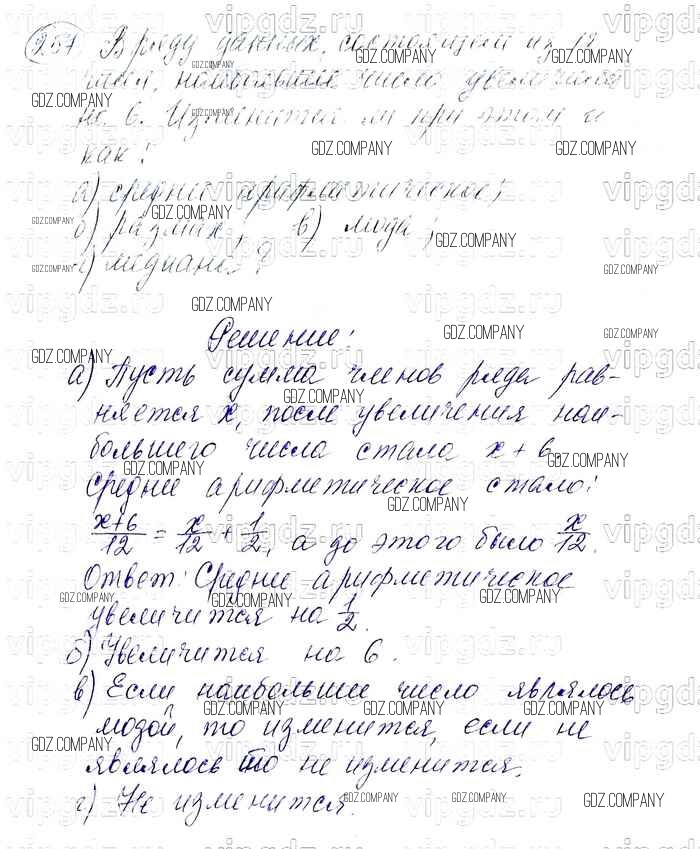 257. В ряду данных, состоящем из 12
чисел, наибольшее число увеличили
на 6. Изменится ли при этом и
как:
а) среднее арифметическое;
б) размах; в) мода;
г) медиана?
Решение:
а) Пусть сумма членов ряда рав-
няется x, после увеличения наи-
большего числа стала x + 6.
Среднее арифметическое стало:
x+6/12 = x/12 + 1/2, а до этого было x/12.
Ответ: Среднее арифметическое
увеличится на 1/2.
б) Увеличится на 6.
в) Если наибольшее число являлось
модой, то изменится, если не
являлось то не изменится.
г) Не изменится.
vipgdz.ru
GDZ.COMPANY